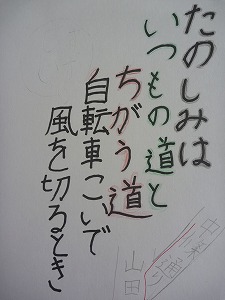 たのしみは
いつもの道と
ちがう道
自転車こいで
風を切るとき
山田